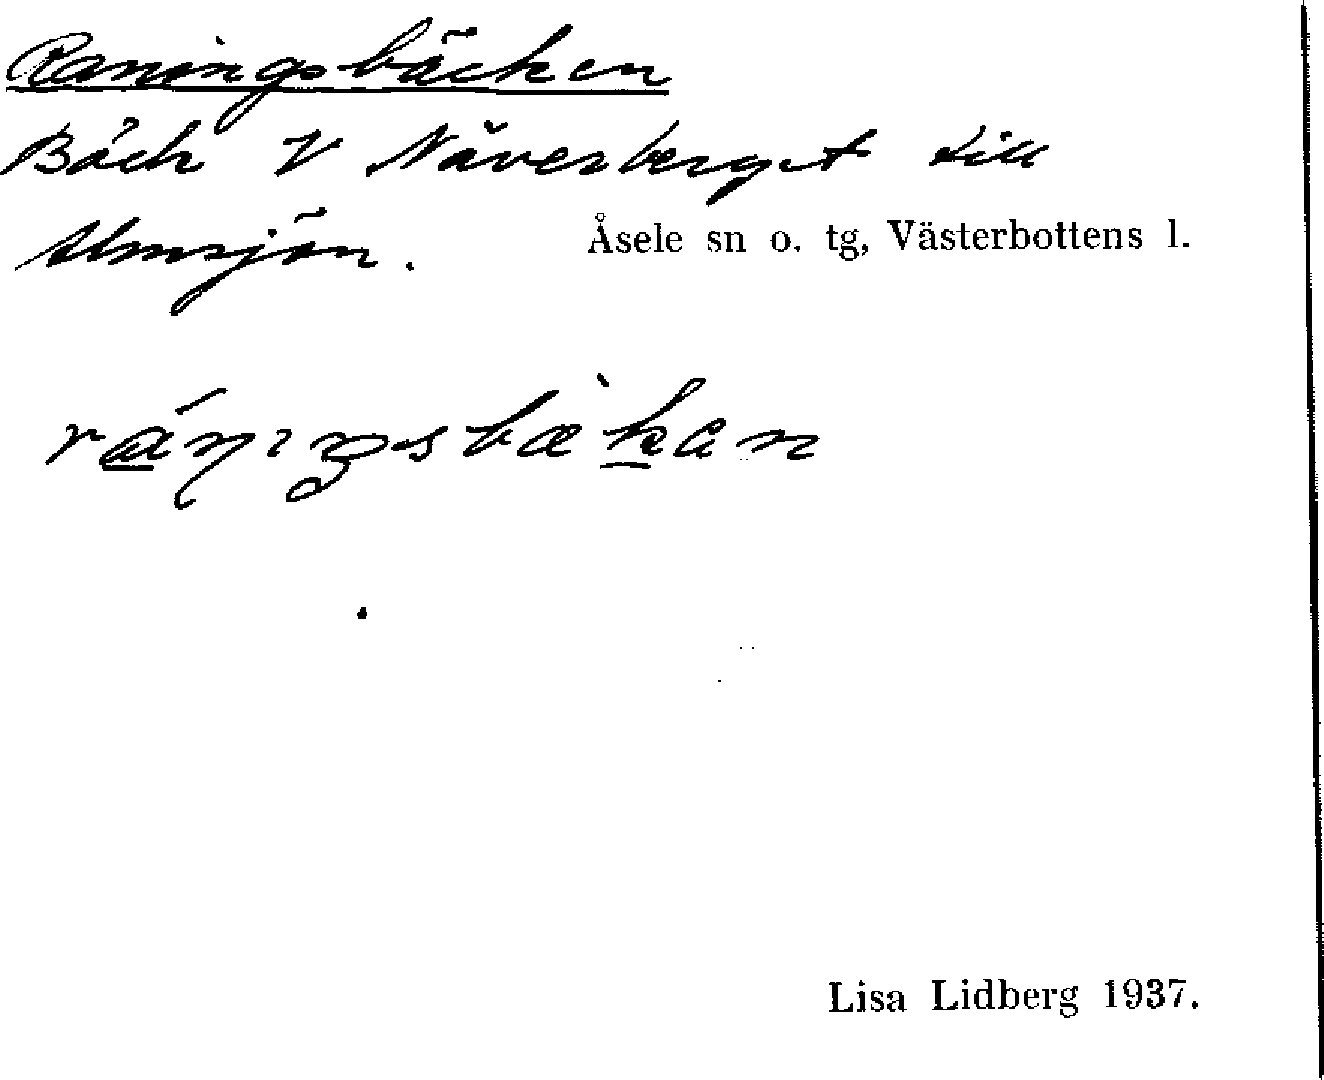 Raningsbäcken
Bäck V Näverberget till
Almsjön.
Åsele sn o. tg, Västerbottens l.
ráṉiŋsbæ̀kan
Lisa Lidberg 1937.